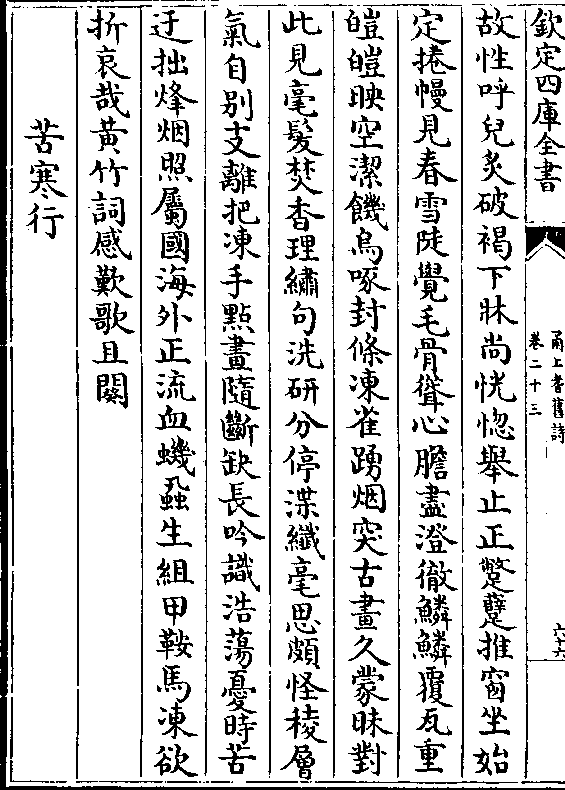 欽定四庫全書
甬上耆舊詩
卷二十三
六六
故性呼兒炙破褐下牀尚恍惚舉止正蹩躠推窗坐始
定捲幔見春雪陡覺毛骨聳心膽盡澄徹鱗鱗覆瓦重
皚皚映空潔饑烏啄封條凍雀踴烟突古畫久蒙昧對
此見毫髮焚香理繡句洗研分停渫纖毫思頗怪稜層
氣自别支離把凍手點畫隨斷缺長吟識浩蕩憂時苦
迂拙烽烟照屬國海外正流血蟣蝨生組甲鞍馬凍欲
折哀哉黄竹詞感歎歌且闋
苦寒行